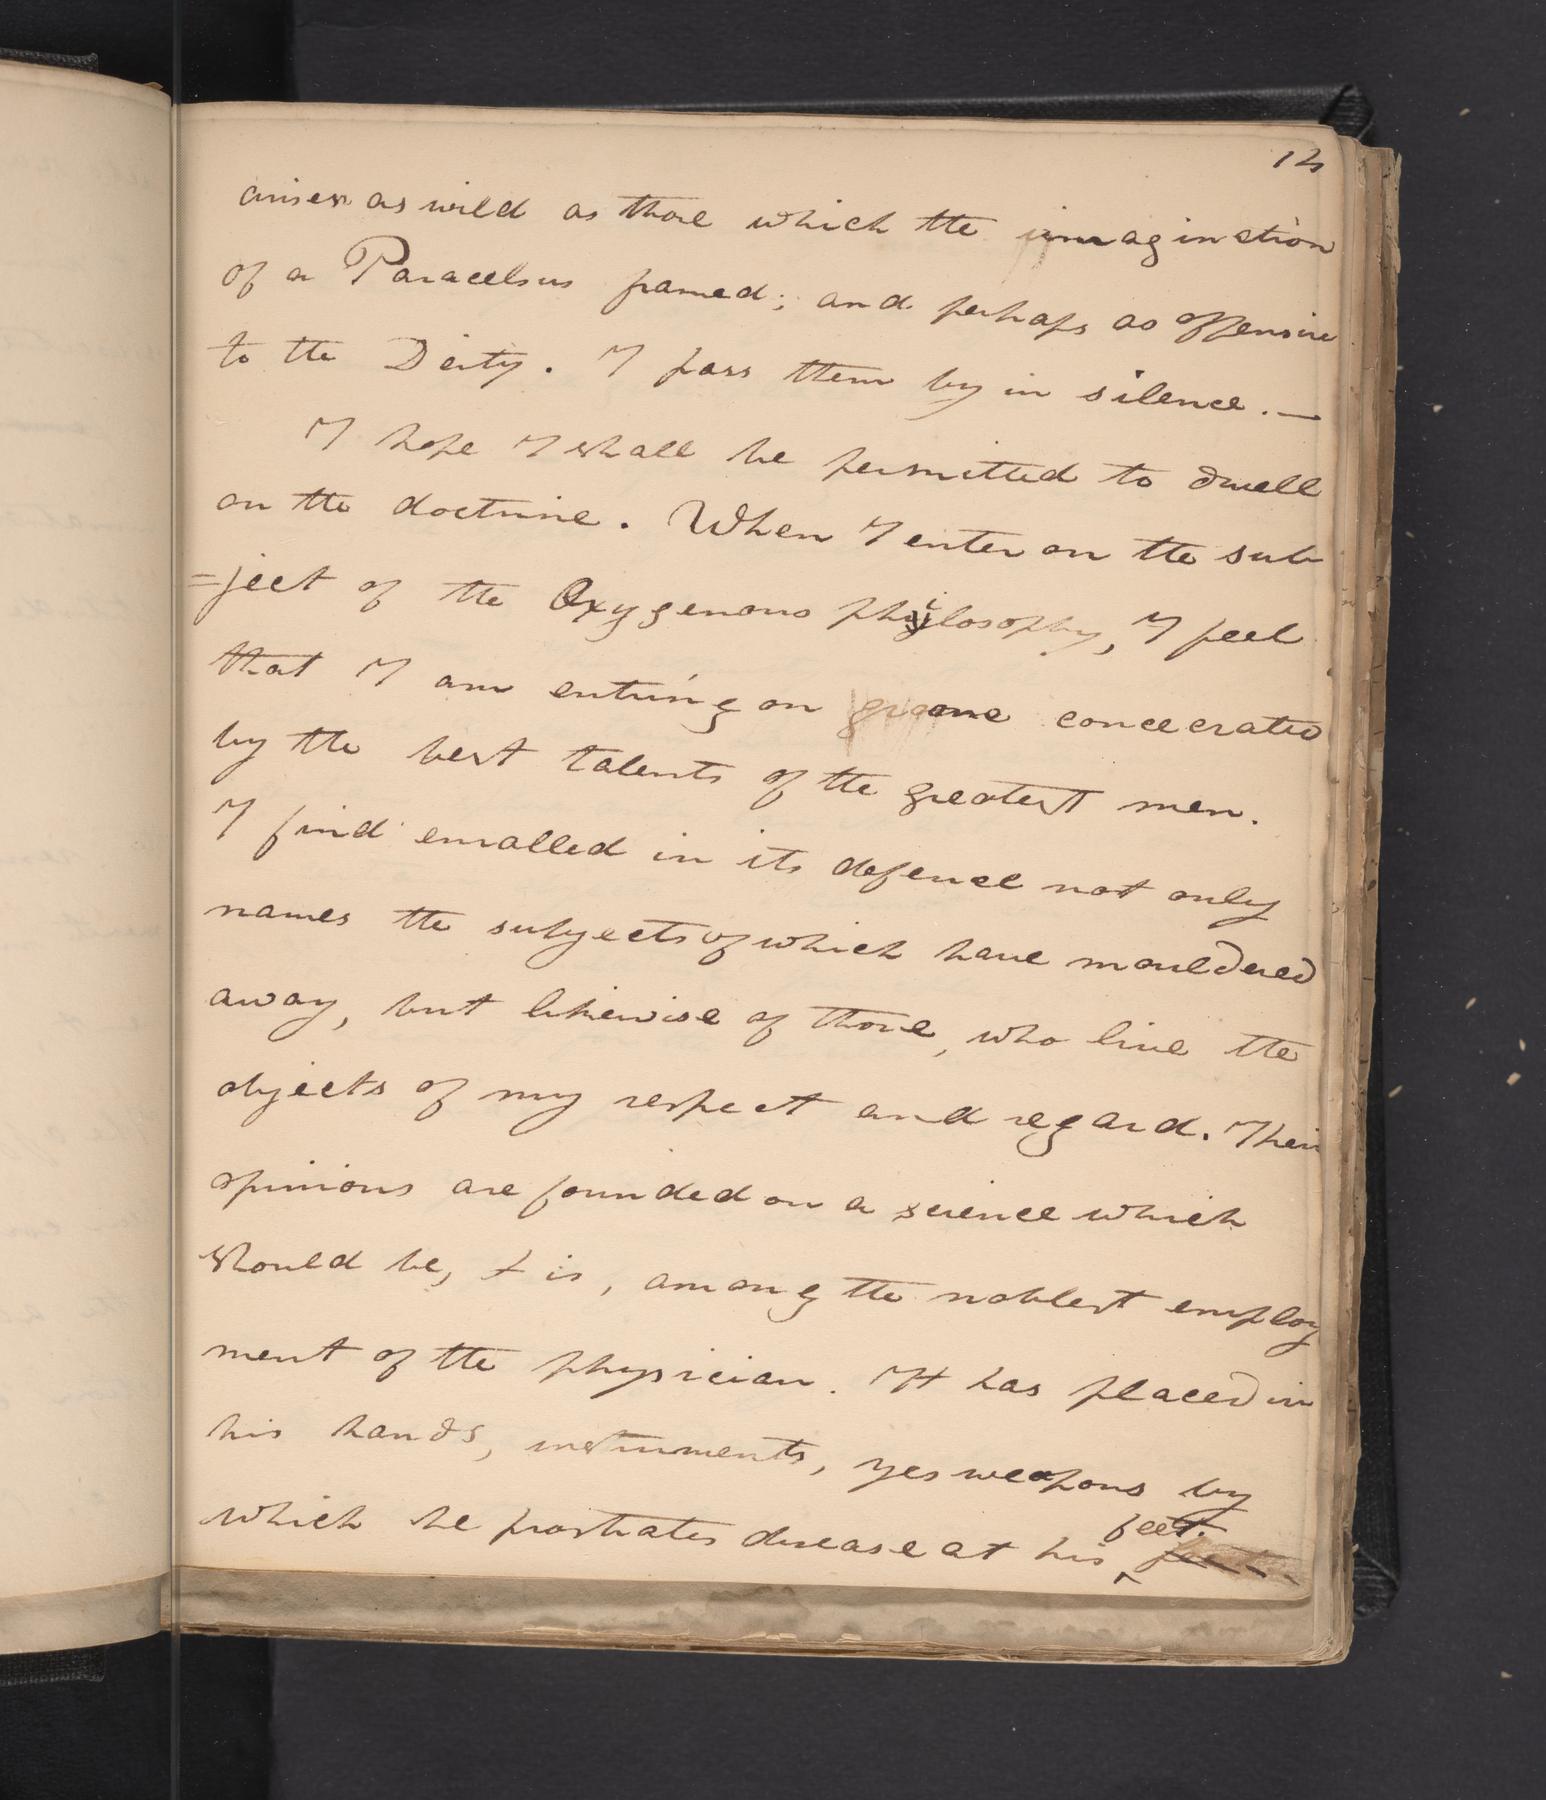 12
arises as wild as those which the imagination
of a Paracelsus framed; and perhaps as offensive
to the Deity. I pass them by in silence.—
I hope I shall be permitted to dwell
on the doctrine. When I enter on the sub
=ject of the Oxygenous philosophy, I feel
that I am entring on one concecrated
by the best talents of the greatest men.
I find enrolled in its defence not only
names the subjects of which have mouldered
away, but likewise of those, who live the
objects of my respect and regard. Their
opinions are founded on a science which
should be, & is, among the noblest employ
ment of the physician. It has placed in
his hands, instruments, yes weapons by
feet.
which he prostrates disease at his ‸ feet